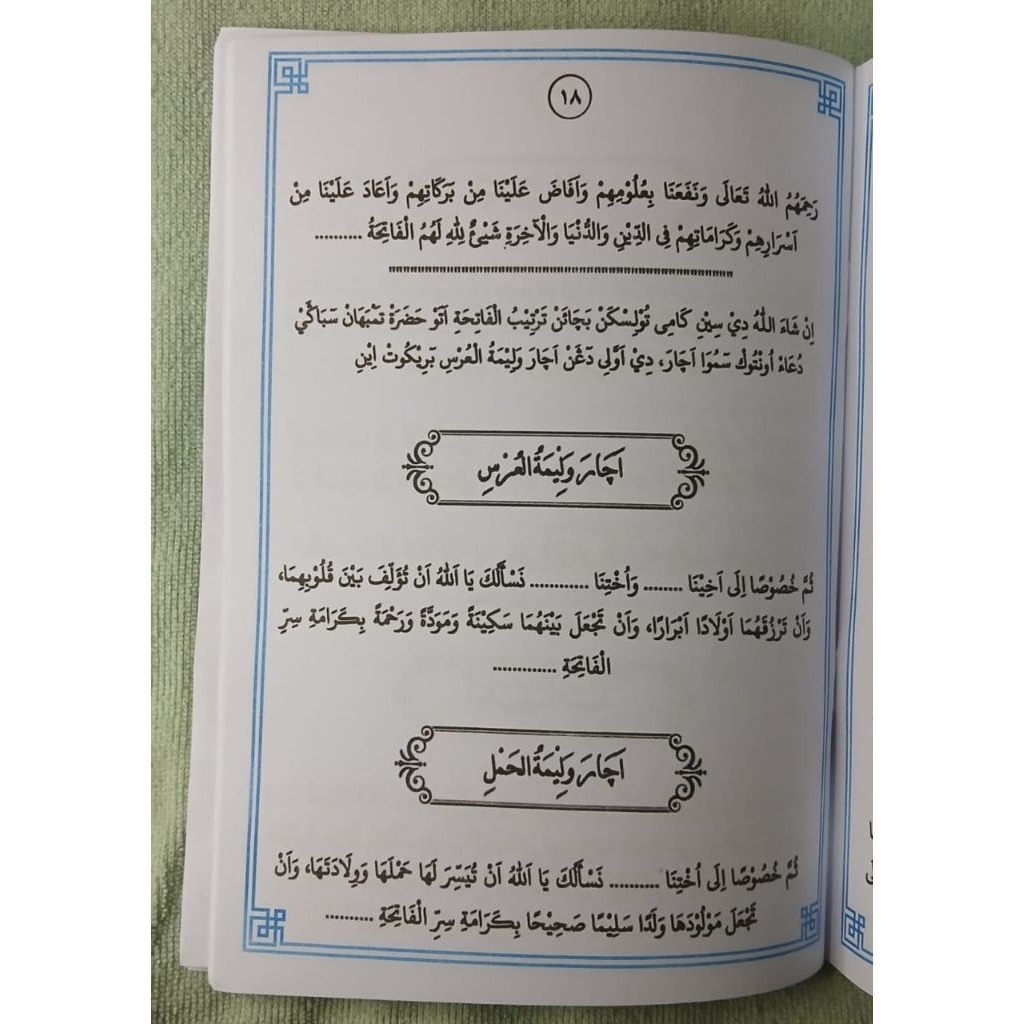 ١٨
رَحِمَهُمُ اللهُ تَعَالَى وَنَفَعَنَا بِعُلُوْمِهِمْ وَاَفَاضَ عَلَيْنَا مِنْ بَرَكَاتِهِمْ وَاَعَادَ عَلَيْنَا مِنْ
اَسْرَارِهِمْ وَكَرَامَاتِهِمْ فِى الدِّيْنِ وَالدُّنْيَا وَالْآخِرَةِ شَيْئٌ لِلّٰهِ لَهُمُ الْفَاتِحَةُ ..........
اِنْ شَاءَ اللّٰهُ دِيْ سِيْنِ كَامِى تُوْلِسْكَنْ بَچَائَنْ تَرْتِيْبُ الْفَاتِحَةِ اَتَوْ حَضْرَةْ تَمْبَهَانْ سَبَاݢَيْ
دُعَاءْ اُونْتُوكْ سَمُوَا اَچَارَ، دِيْ اَوَّلِى دَڠَنْ اَچَارَ وَلِيْمَةُ الْعُرْسِ بَرِيْكُوتْ اِيْنِ
اَچَارَ وَلِيْمَةُ الْعُرْسِ
ثُمَّ خُصُوْصًا اِلَى اَخِيْنَا ........ وَاُخْتِنَا ............ نَسْأَلُكَ يَا اَللهُ اَنْ تُؤَلِّفَ بَيْنَ قُلُوْبِهِمَا،
وَاَنْ تَرْزُقَهُمَا اَوْلَادًا اَبْرَارًا، وَاَنْ تَجْعَلَ بَيْنَهُمَا سَكِيْنَةً وَمَوَدَّةً وَرَحْمَةً بِكَرَامَةِ سِرِّ
الْفَاتِحَةِ .............
اَچَارَ وَلِيْمَةُ الحَمْلِ
ثُمَّ خُصُوْصًا اِلَى اُخْتِنَا .......... نَسْأَلُكَ يَا اَللهُ اَنْ تُيَسِّرَ لَهَا حَمْلَهَا وَوِلَادَتَهَا، وَاَنْ
تَجْعَلَ مَوْلُوْدَهَا وَلَدًا سَلِيْمًا صَحِيْحًا بِكَرَامَةِ سِرِّ الْفَاتِحَةِ ..........